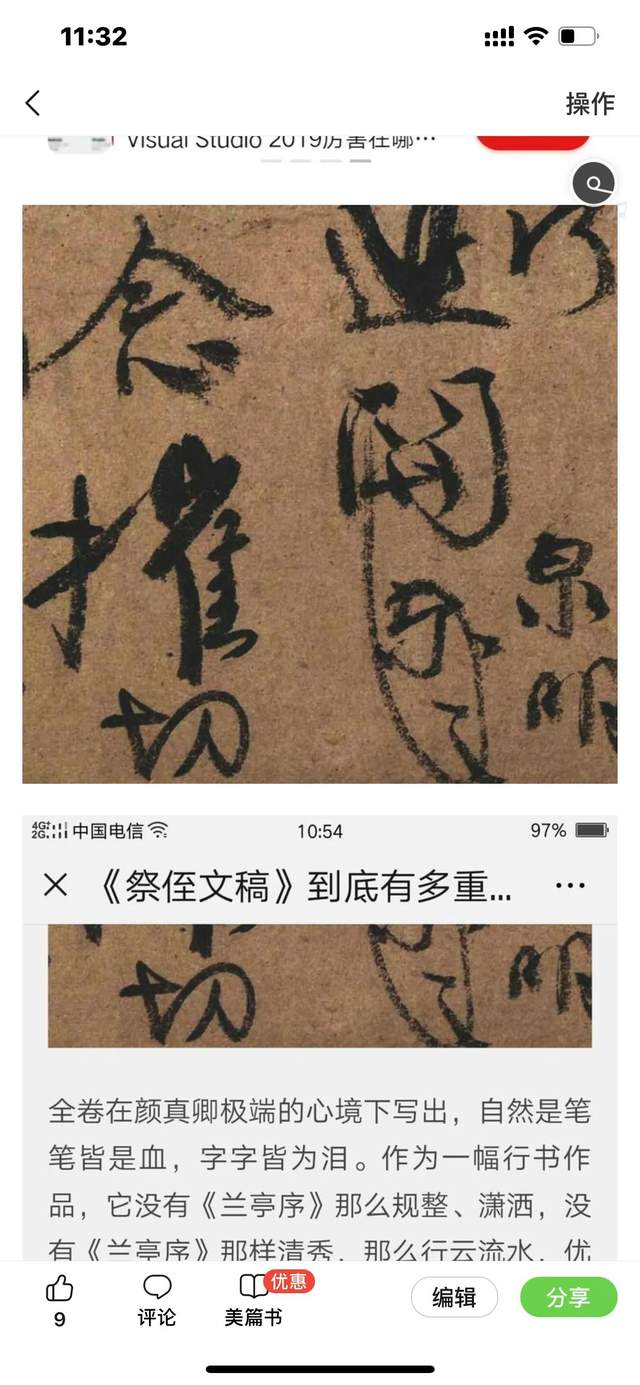 11:32
操作
Visual Studio 2019厉害在哪…
念
摧
切
开
泉
明
4G+ 2G 中国电信 10:54 97%
《祭侄文稿》到底有多重...
切
明
全卷在颜真卿极端的心境下写出，自然是笔
笔皆是血，字字皆为泪。作为一幅行书作
品，它没有《兰亭序》那么规整、潇洒，没
有《兰亭序》那样清秀，那么行云流水，优
9 评论 美篇书 优惠 编辑 分享